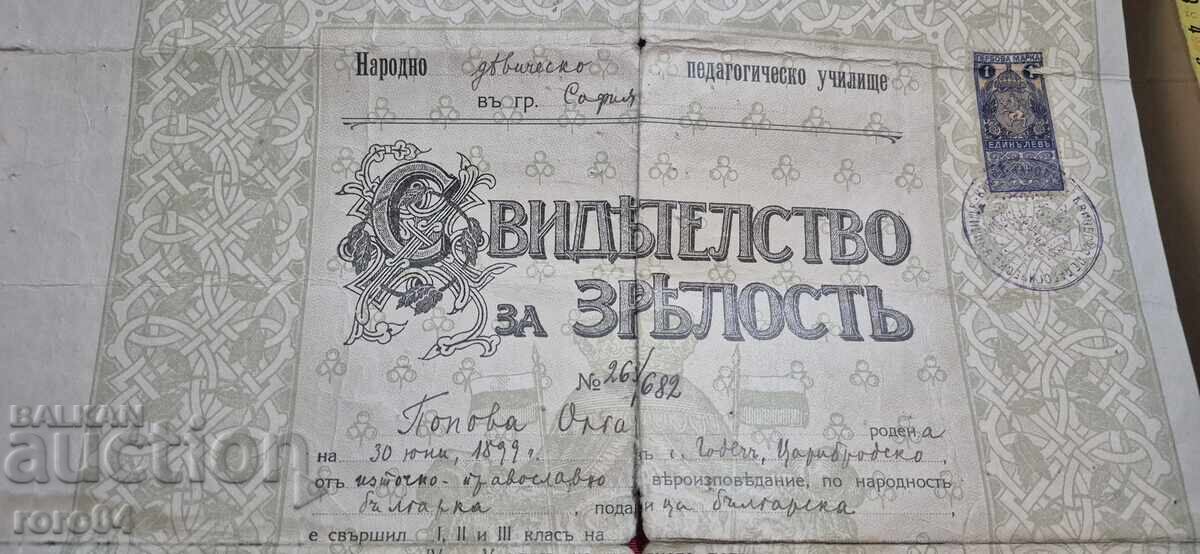 Народно дѣвическо педагогическо училище
въ гр. София
ГЕРБОВА МАРКА
1
ЕДИНЪ ЛЕВЪ
СВИДѢТЕЛСТВО
ЗА ЗРѢЛОСТЬ
№ 263/682
Попова Олга родена
на 30 юни, 1899 г. въ с. Годечъ, Царибродско,
отъ източно-православно вѣроизповѣдание, по народность
българка, подани ца българска
е свършил I, II и III класъ на
BALKAN
auction
roro04